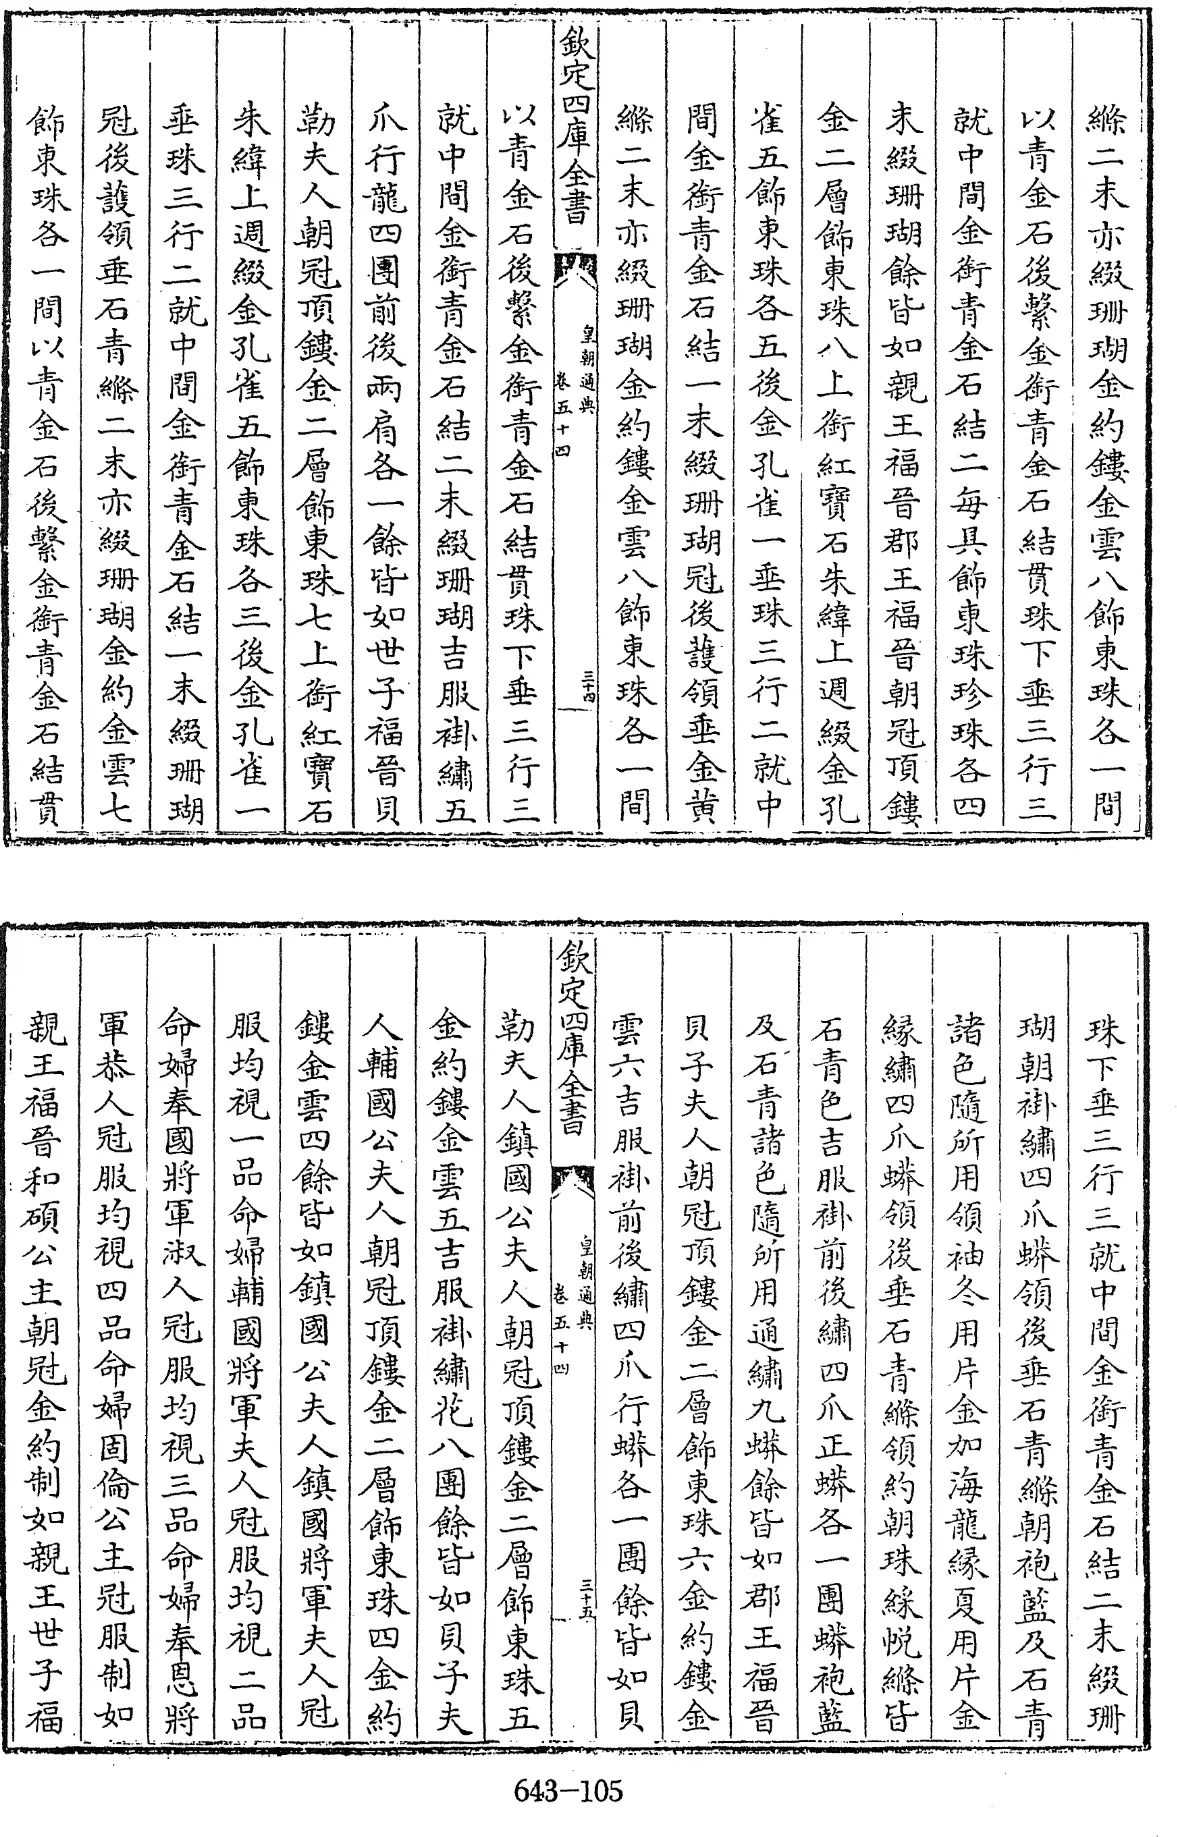 絛二末亦綴珊瑚金約鏤金雲八飾東珠各一間
以青金石後繫金銜青金石結貫珠下垂三行三
就中間金銜青金石結二每具飾東珠珍珠各四
末綴珊瑚餘皆如親王福晉郡王福晉朝冠頂鏤
金二層飾東珠八上銜紅寶石朱緯上週綴金孔
雀五飾東珠各五後金孔雀一垂珠三行二就中
間金銜青金石結一末綴珊瑚冠後護領垂金黄
絛二末亦綴珊瑚金約鏤金雲八飾東珠各一間
欽定四庫全書
皇朝通典
卷五十四
三十四
以青金石後繫金銜青金石結貫珠下垂三行三
就中間金銜青金石結二末綴珊瑚吉服褂繡五
爪行龍四團前後兩肩各一餘皆如世子福晉貝
勒夫人朝冠頂鏤金二層飾東珠七上銜紅寶石
朱緯上週綴金孔雀五飾東珠各三後金孔雀一
垂珠三行二就中間金銜青金石結一末綴珊瑚
冠後護領垂石青絛二末亦綴珊瑚金約金雲七
飾東珠各一間以青金石後繫金銜青金石結貫
珠下垂三行三就中間金銜青金石結二末綴珊
瑚朝褂繡四爪蟒領後垂石青絛朝袍藍及石青
諸色隨所用領袖冬用片金加海龍緣夏用片金
緣繡四爪蟒領後垂石青絛領約朝珠綵帨絛皆
石青色吉服褂前後繡四爪正蟒各一團蟒袍藍
及石青諸色隨所用通繡九蟒餘皆如郡王福晉
貝子夫人朝冠頂鏤金二層飾東珠六金約鏤金
雲六吉服褂前後繡四爪行蟒各一團餘皆如貝
欽定四庫全書
皇朝通典
卷五十四
三十五
勒夫人鎮國公夫人朝冠頂鏤金二層飾東珠五
金約鏤金雲五吉服褂繡花八團餘皆如貝子夫
人輔國公夫人朝冠頂鏤金二層飾東珠四金約
鏤金雲四餘皆如鎮國公夫人鎮國將軍夫人冠
服均視一品命婦輔國將軍夫人冠服均視二品
命婦奉國將軍淑人冠服均視三品命婦奉恩將
軍恭人冠服均視四品命婦固倫公主冠服制如
親王福晉和碩公主朝冠金約制如親王世子福
643-105